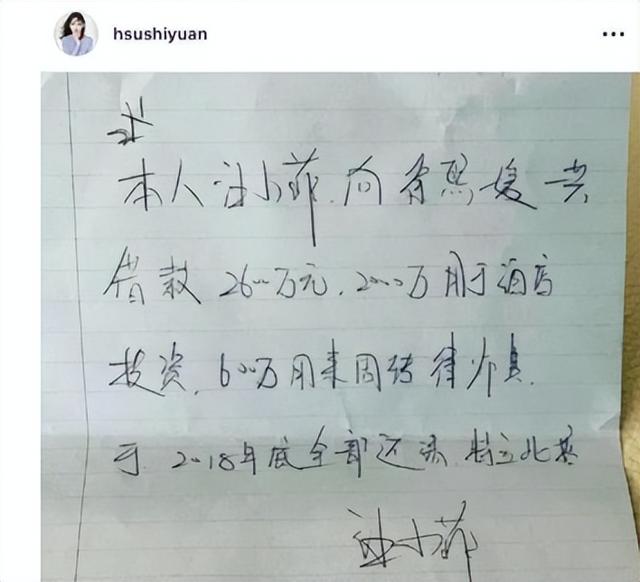 hsushiyuan
本人汪小菲,向徐熙媛共
借款2600万元,2000万用于酒店
投资,600万用来周转律师费,
于2018年底全部还清,特立此
汪小菲